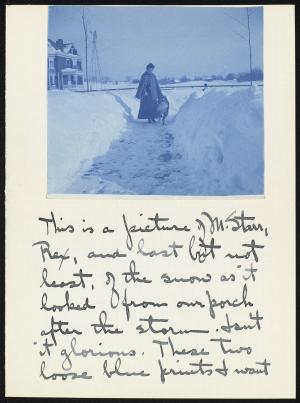 This is a picture of M. Starr,
Rex, and last but not
least, of the snow as it
looked from our porch
after the storm. Isn't
it glorious. These two
loose blue prints I want